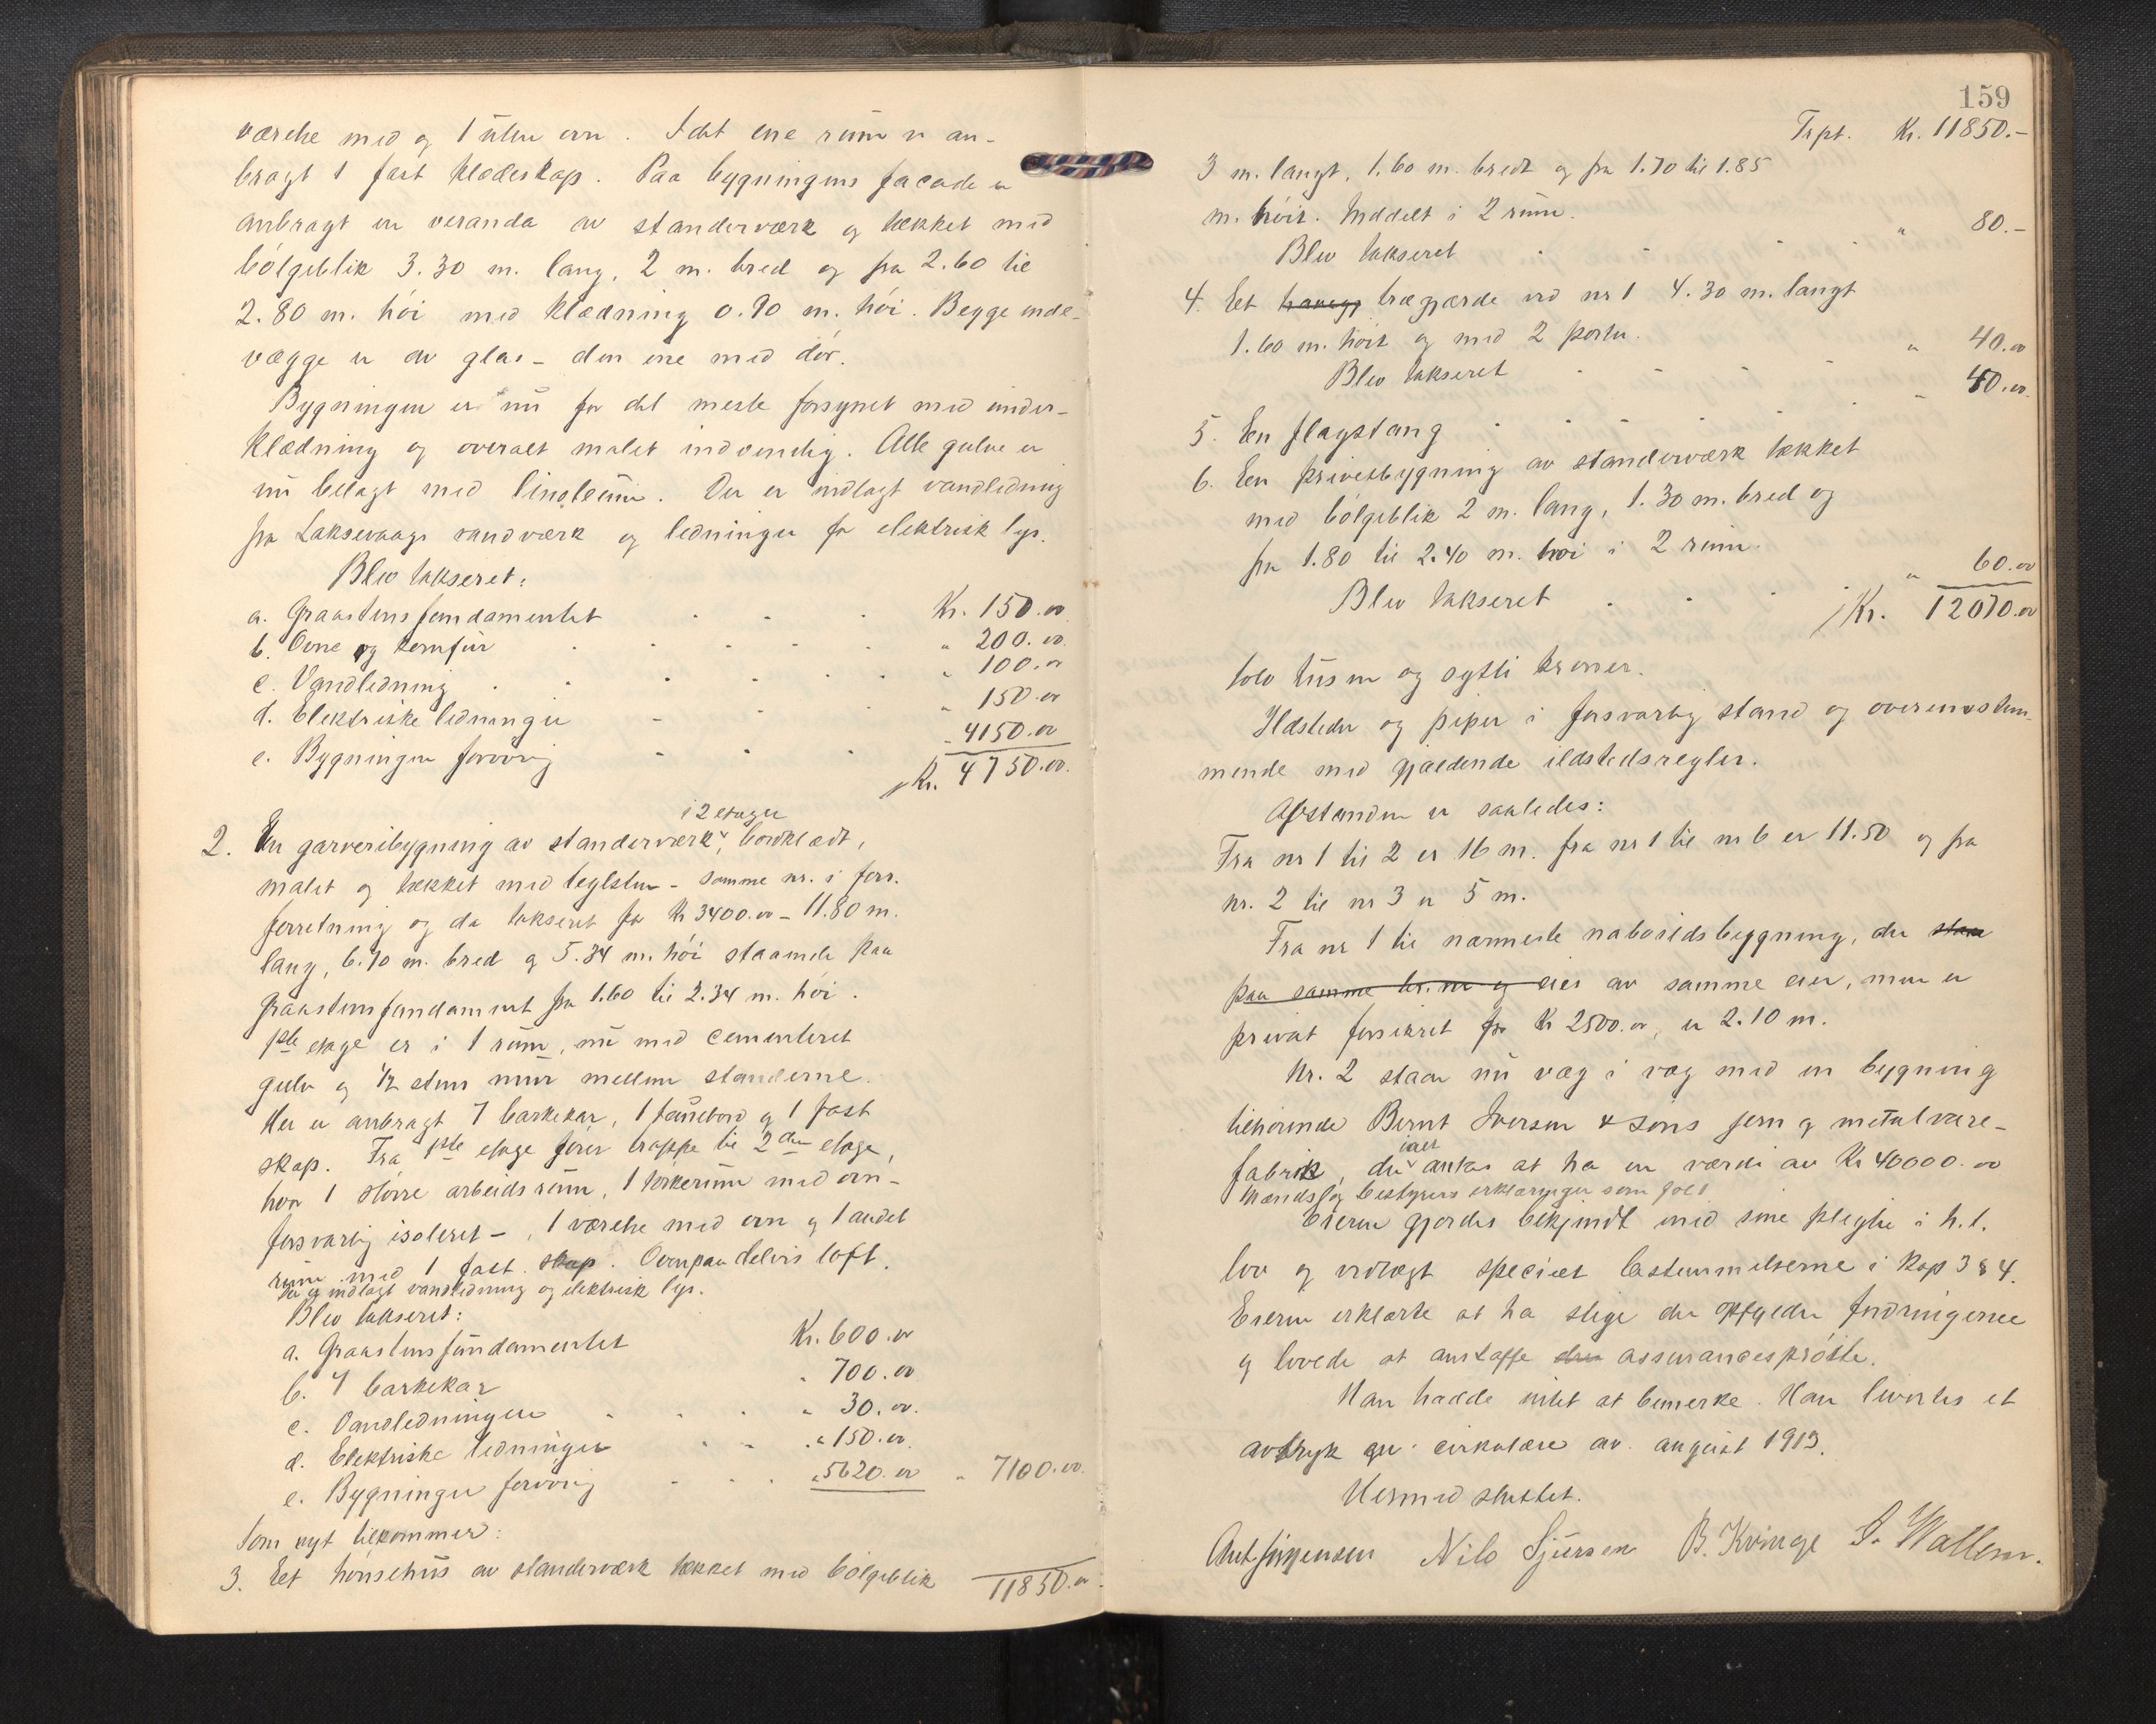 værelse med og 1 uten ovn. I det ene rum er an-
bragt 1 fast klædeskap. Paa bygningens facade er
anbragt en veranda av standerværk og tækket med
bölgeblik 3.30 m. lang, 2 m. bred og fra 2.60 til
2.80 m. höi med klædning 0.90 m. höi. Begge ende-
vægge er av glas - den ene med dör.
Bygningen er nu for det meste forsynet med under-
klædning og overalt malet indvendig. Alle gulve er
nu belagt med linoleum. Der er indlagt vandledning
fra Laksevaags vandværk og ledninger for elektrisk lys.
Blev takseret:
a. Graastensfundamentet Kr. 150.00
b. Ovne og komfur " 200.00
c. Vandledning " 100.00
d. Elektriske ledninger " 150.00
e. Bygningen forövrig " 4150.00
Kr. 4750.00
i 2 etager
2. En garveribygning av standerværk, bordklædt,
malet og tækket med teglsten - samme nr. i forr.
forretning og da takseret for Kr 3400.00 - 11.80 m.
lang, 6.10 m. bred og 5.34 m. höi staaende paa
graastensfundament fra 1.60 til 2.34 m. höi.
1ste etage er i 1 rum, nu med cementeret
gulv og 1/2 stens mur mellem standerne.
Her er anbragt 7 barkekar, 1 bord og 1 fast
skap. Fra 1ste etage förer trappe til 2den etage,
hvor 1 större arbeidsrum, 1 törkerum med ovn -
forsvarlig isoleret -, 1 værelse med ovn og 1 andet
rum med 1 fast skap. Ovenpaa delvis loft.
Der er indlagt vandledning og elektrisk lys.
Blev takseret:
a. Graastensfundamentet Kr. 600.00
b. 7 barkekar " 700.00
c. Vandledningen " 30.00
d. Elektriske ledninger " 150.00
e. Bygningen forövrig " 5620.00 " 7100.00
Som nyt tilkommer:
3. Et hönsehus av standerværk tækket med bölgeblik 11850.00
159
Trpt. Kr. 11850.-
3 m. langt, 1.60 m. bredt og fra 1.70 til 1.85
m. höit. Inddelt i 2 rum.
Blev takseret " 80.-
4. Et trægjærde ved nr 1 4.30 m. langt
1.60 m. höit og med 2 porter.
Blev takseret " 40.00
5. En flagstang " 40.00
6. En privetbygning av standerværk tækket
med bölgeblik 2 m. lang, 1.30 m. bred og
fra 1.80 til 2.40 m. höi i 2 rum.
Blev takseret " 60.00
Kr. 12070.00
tolv tusen og sytti kroner.
Ildsteder og piper i forsvarlig stand og overensstem-
mende med gjældende ildstedsregler.
Avstanden er saaledes:
Fra nr 1 til 2 er 16 m. fra nr 1 til nr 6 er 11.50 og fra
nr. 2 til nr 3 er 5 m.
Fra nr 1 til nærmeste naboildsbygning, der staar
paa samme br. nr og eies av samme eier, men er
privat forsikret for Kr 2500.00, er 2.10 m.
Nr. 2 staar nu væg i væg med en bygning
tilhörende Bernt Iversen & Söns jern og metalvare-
ialt
fabrik, der antas at ha en værdi av Kr 40000.00
Mændsog bestyrers erklæringer som för
Eieren gjordes bekjendt med sine pligter i h.t.
lov og vedtægt specielt bestemmelserne i Kap 3 & 4.
Eieren erklærte at ha stige der opfylder fordringerne
og lovede at anskaffe assurancespröite.
Han hadde intet at bemerke. Han levertes et
avtryk av cirkulære av august 1913.
Hermed sluttet.
Ant Jörgensen Nils Sjursen B. Kvinge S. Wallem.